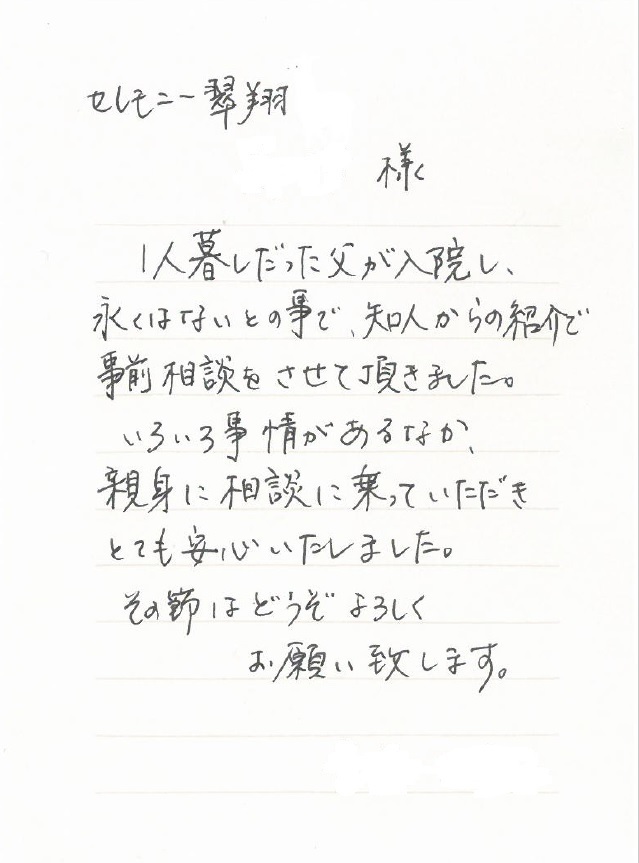 セレモニー翠翔
様
1人暮しだった父が入院し、
永くはないとの事で、知人からの紹介で
事前相談をさせて頂きました。
いろいろ事情があるなか、
親身に相談に乗っていただき
とても安心いたしました。
その節はどうぞよろしく
お願い致します。